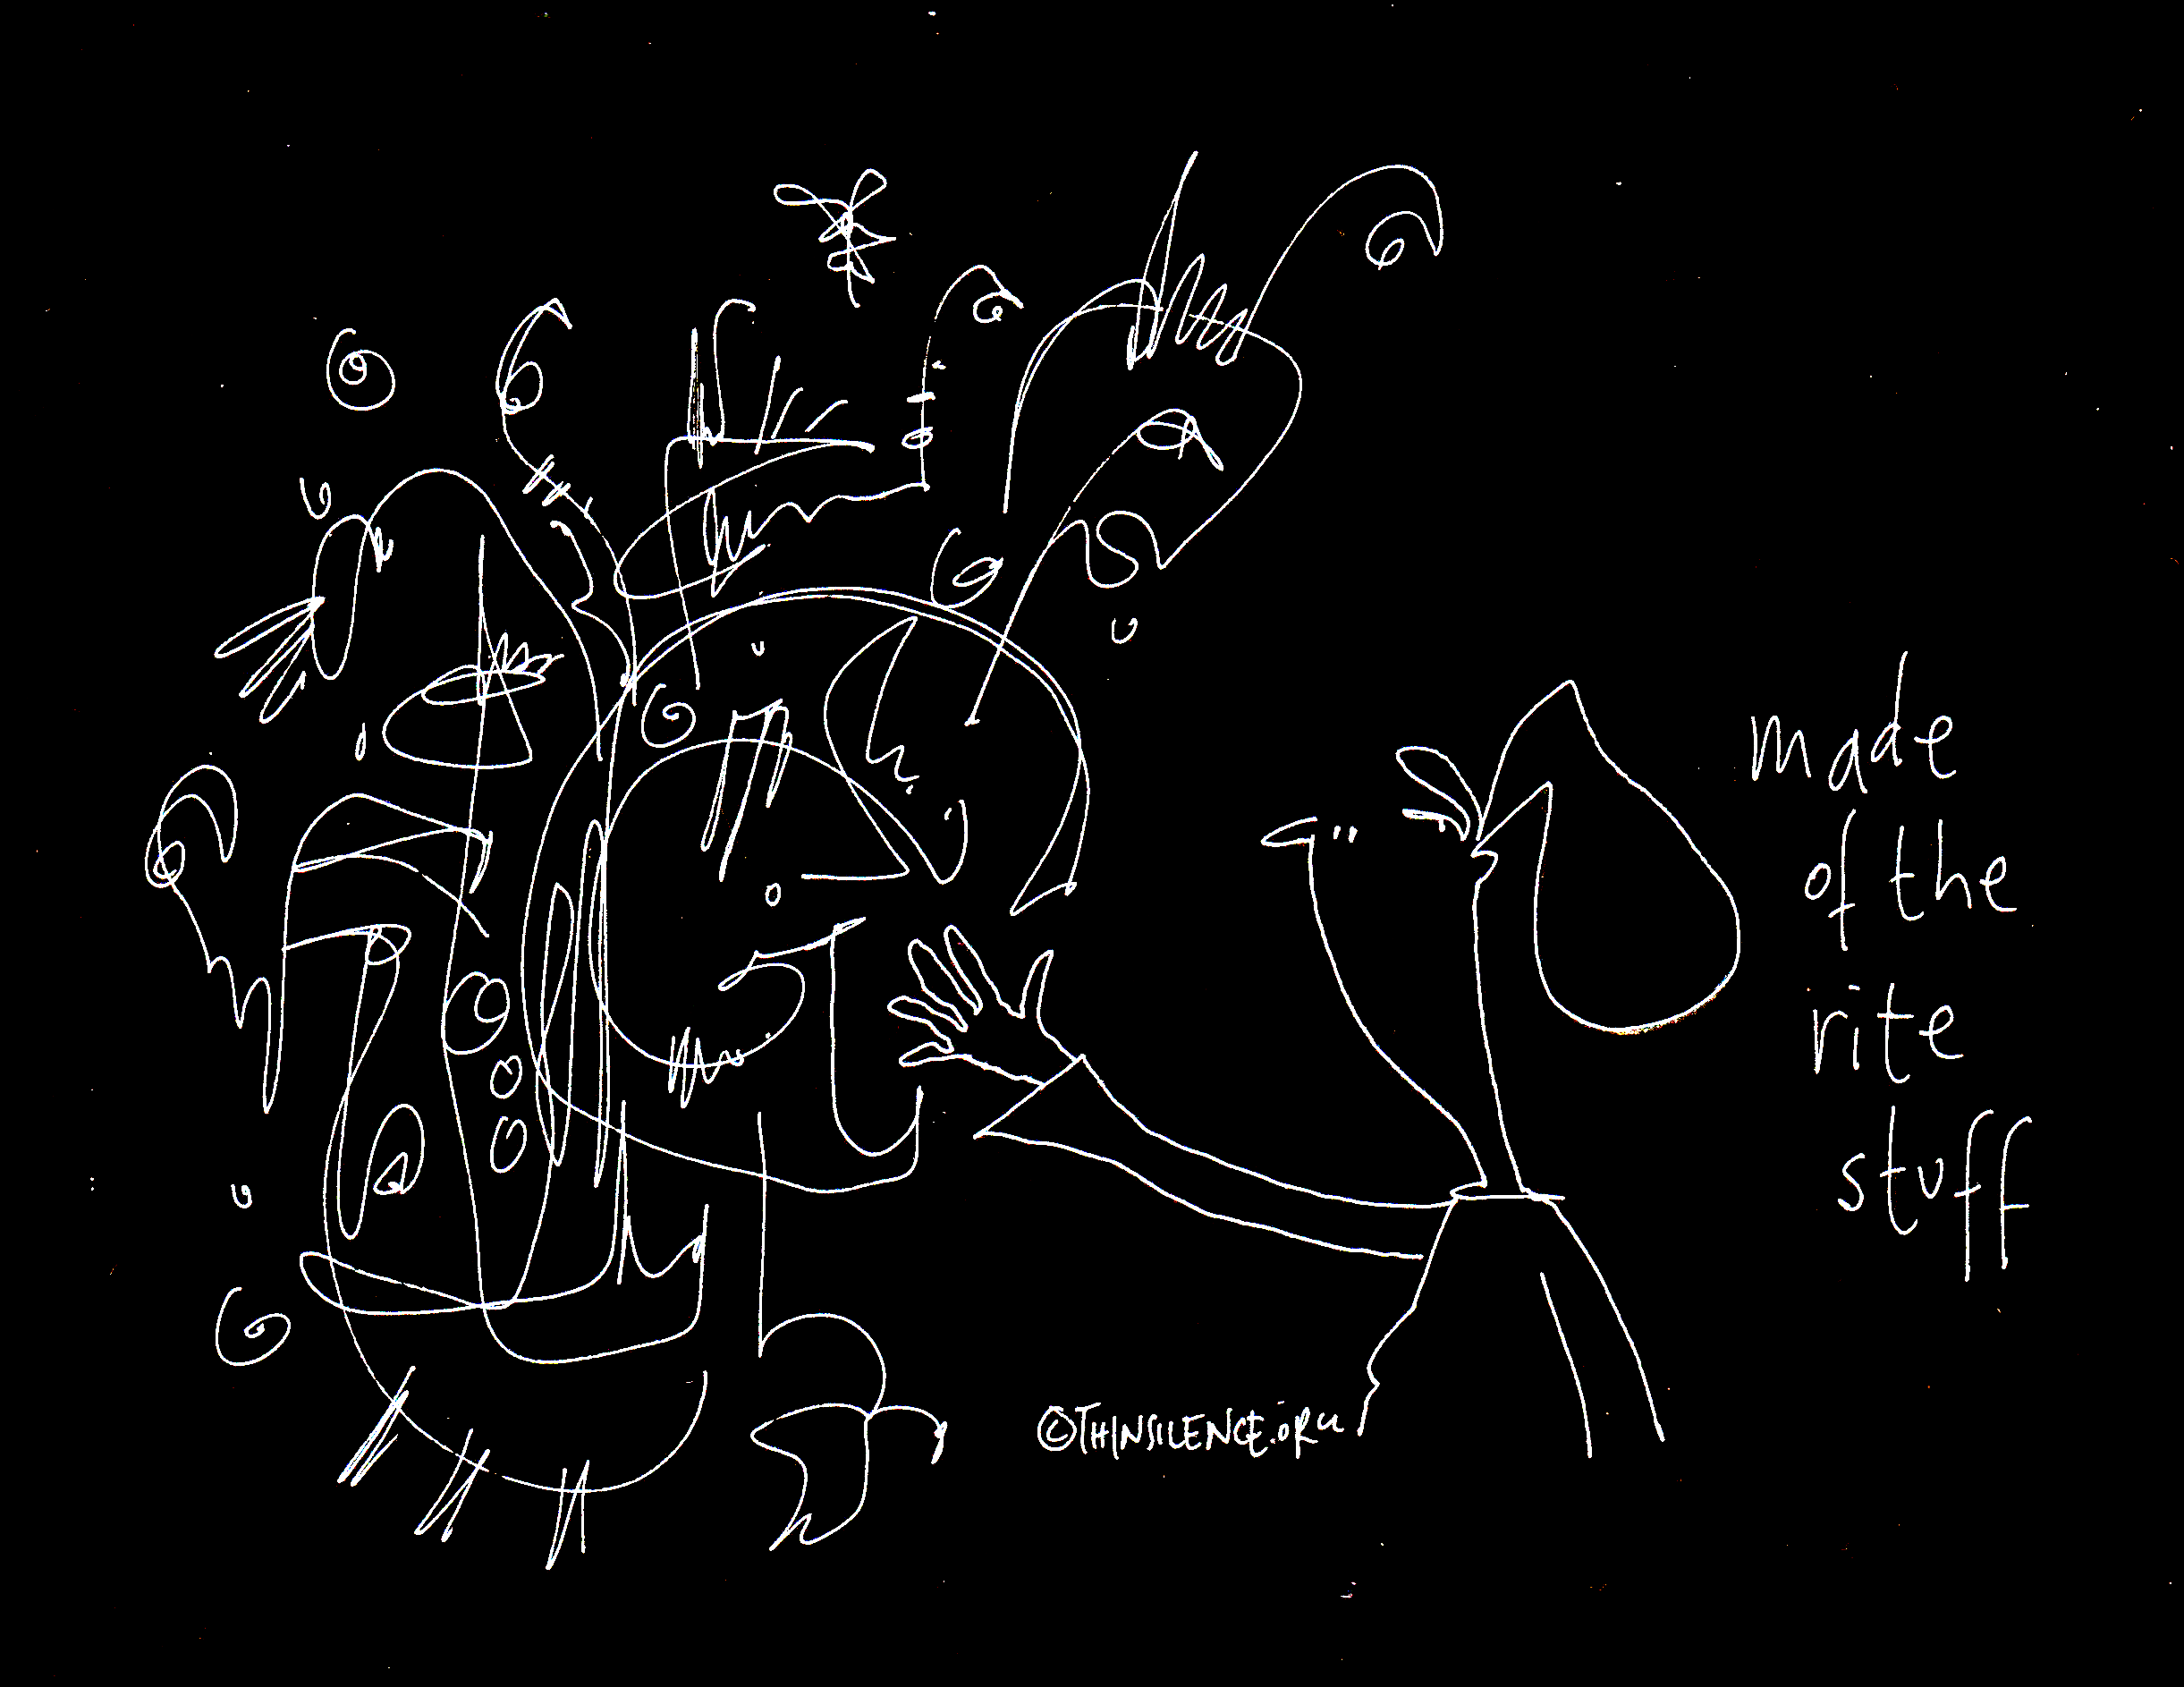 made
of the
rite
stuff
©THINSILENCE.ORG